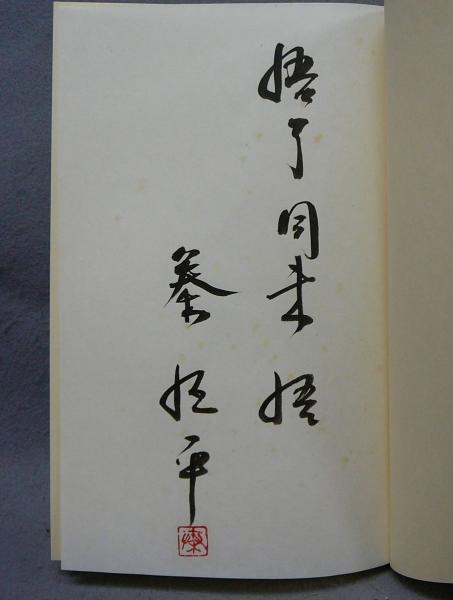 悟了同未悟
秦恒平
秦